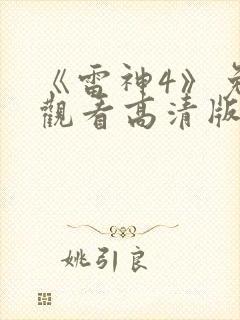 《雷神4》免
觀看高清版
姚引良